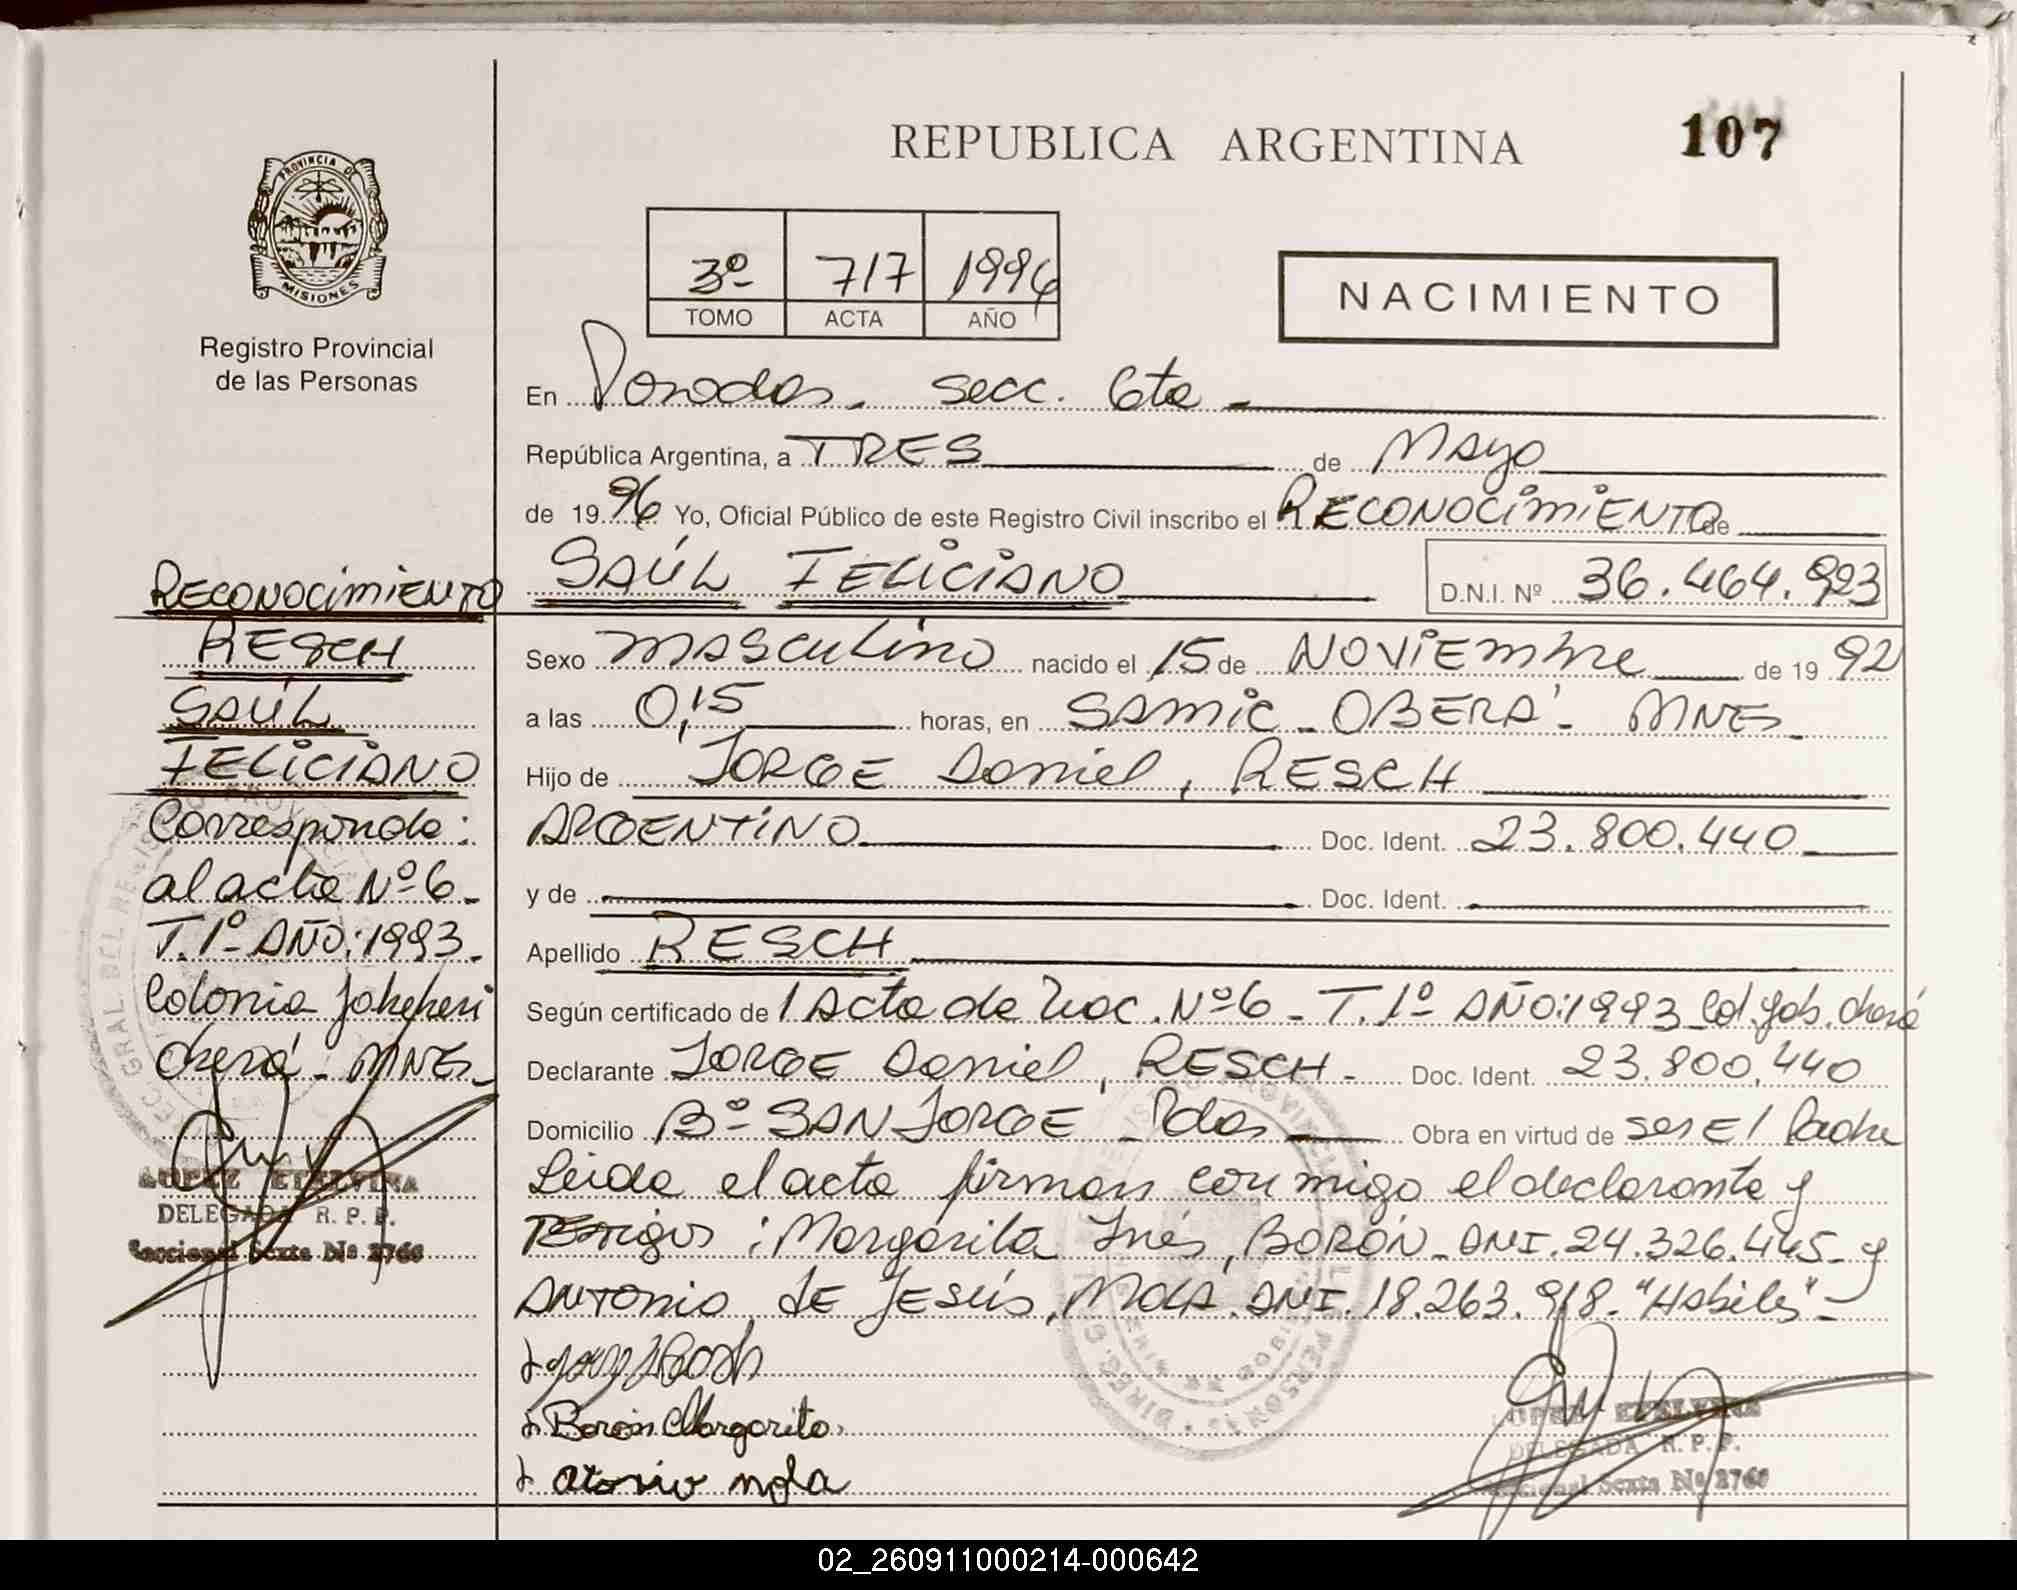 REPUBLICA ARGENTINA
107
PROVINCIA DE
MISIONES
Registro Provincial
de las Personas
3º 717 1996
TOMO ACTA AÑO
NACIMIENTO
En Posadas. secc. 6ta
República Argentina, a TRES de Mayo
de 1996 Yo, Oficial Público de este Registro Civil inscribo el RECONOCIMIENTO de
SAÚL FELICIANO D.N.I. Nº 36.464.923
Sexo masculino nacido el 15 de NOVIEmbre de 1992
a las 0,15 horas, en SAMIC - OBERÁ - MNES
Hijo de JORGE Daniel, RESCH
ARGENTINO Doc. Ident. 23.800.440
y de Doc. Ident.
Apellido RESCH
Según certificado de 1 Acta de nac. Nº 6 - T. 1º AÑO: 1993 Col. Yab. cherá
Declarante JORGE Daniel, RESCH - Doc. Ident. 23.800.440
Domicilio Bº SAN JORGE - Pdas Obra en virtud de ser El Padre
Leida el acta firman conmigo el declarante y
TEstigos: Margarita Inés, BORÓN - DNI. 24.326.445 - y
ANTONIO dE JESÚS, MOLA. DNI. 18.263.918. "Habiles" -
Borón Margarita
Atonio mola
RECONOCIMIENTO
RESCH
SAÚL
FELICIANO
Corresponde:
al acta Nº 6 -
T. 1º - AÑO: 1993 -
Colonia Yabebiri
cherá - MNES -
LOPEZ ETELVINA
DELEGADA R. P. P.
Seccional Sexta Nº 2760
LOPEZ ETELVINA
DELEGADA R. P. P.
Seccional Sexta Nº 2760
02_260911000214-000642